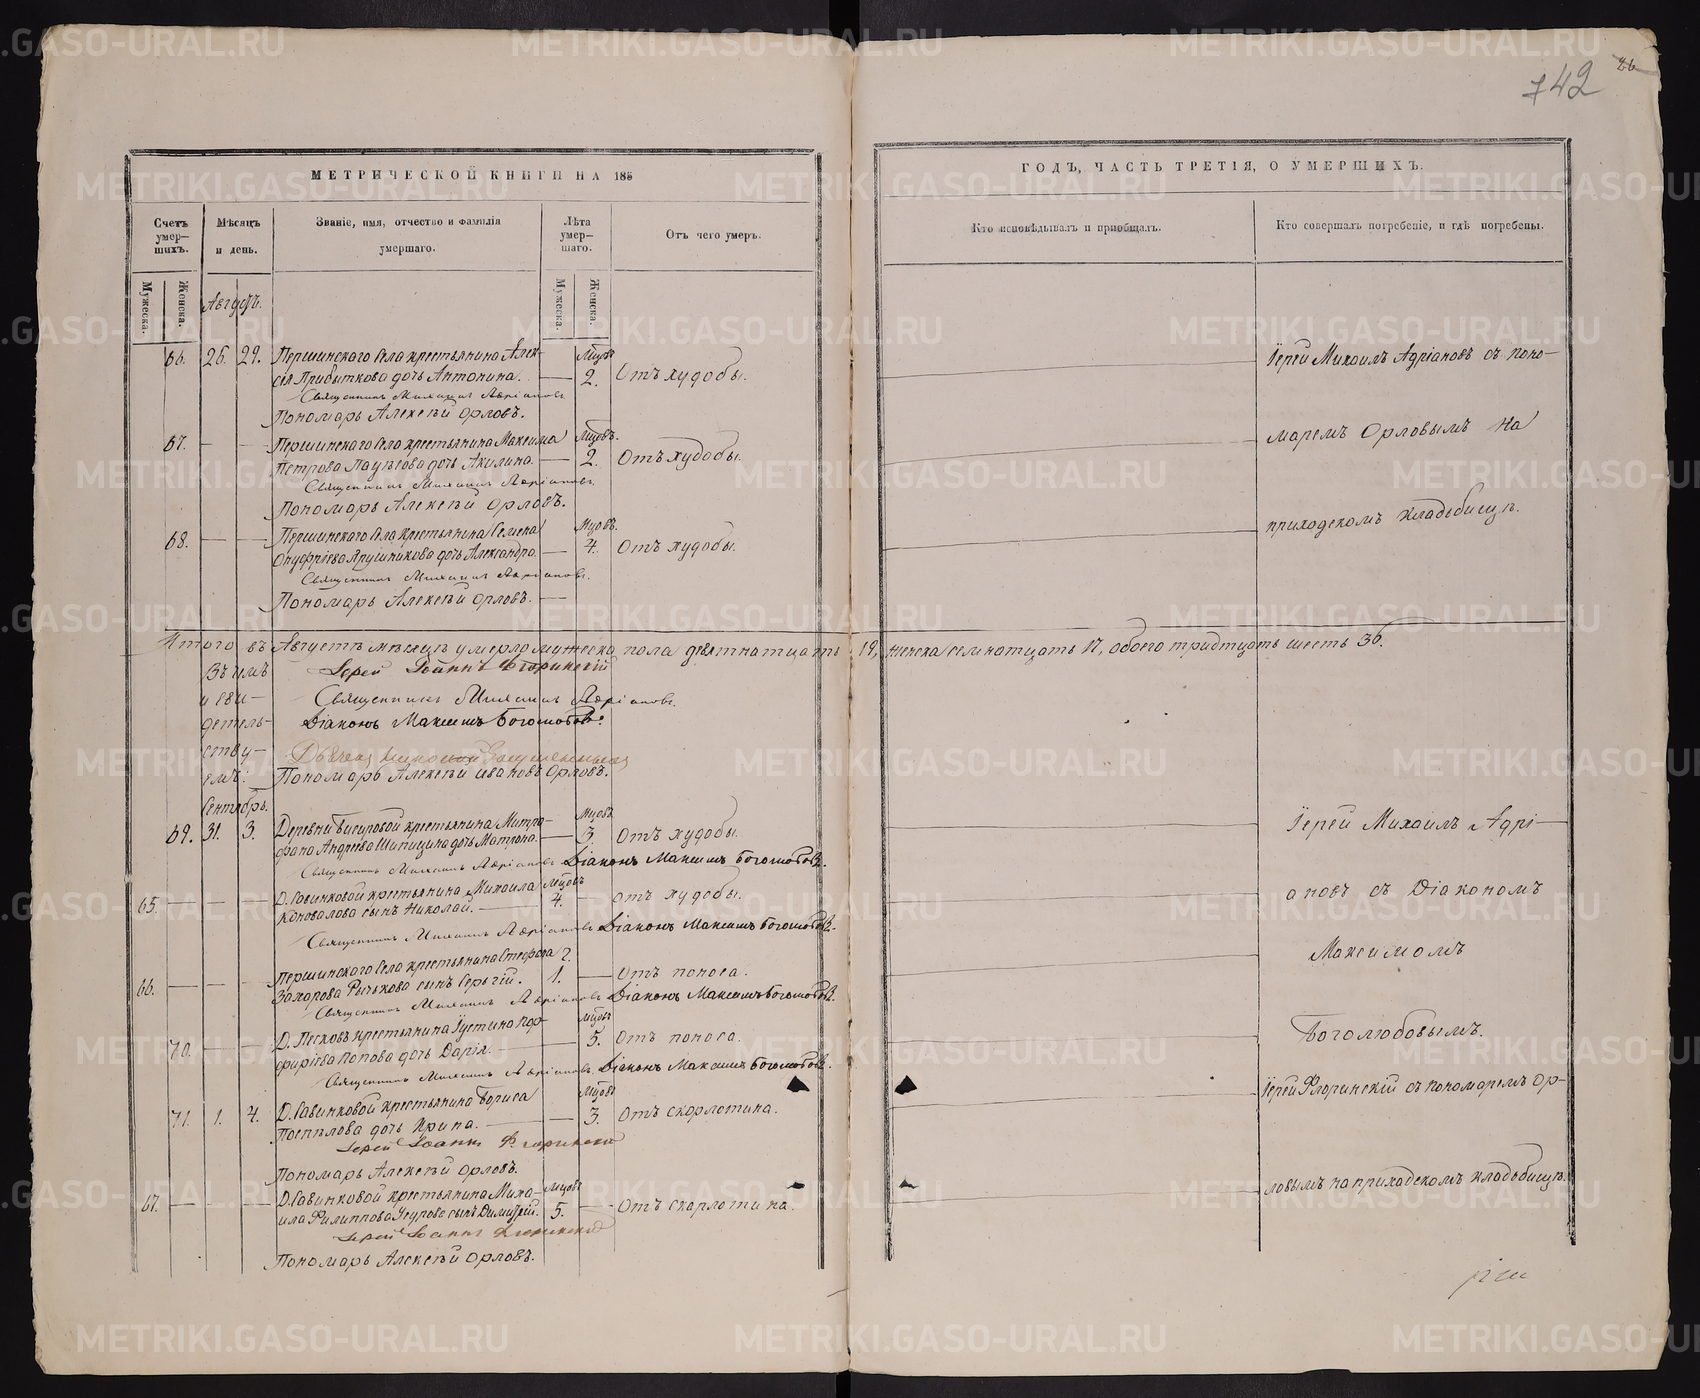 742
26
МЕТРИЧЕСКОЙ КНИГИ НА 185
ГОДЪ, ЧАСТЬ ТРЕТІЯ, О УМЕРШИХЪ.
Счетъ умер-шихъ.
Мѣсяцъ и день.
Званіе, имя, отчество и фамилія умершаго.
Лѣта умер-шаго.
Отъ чего умеръ.
Кто исповѣдывалъ и пріобщалъ.
Кто совершалъ погребеніе, и гдѣ погребены.
Мужеска.
Женска.
Мужеска.
Женска.
Августъ.
66. 26. 29. Першинскаго Села крестьянина Алек-
сія Прибыткова дочь Антонина. 2. Отъ худобы.
Мцовъ
Священникъ Михаилъ Адріановъ
Пономарь Алексѣй Орловъ.
Іерей Михаилъ Адріановъ съ поно-
67. Першинскаго Села крестьянина Максима Мцовъ.
Петрова дочь Акилина. 2. Отъ худобы.
Священникъ Михаилъ Адріановъ.
Пономарь Алексѣй Орловъ.
маремъ Орловымъ на
68. Першинскаго Села крестьянина Семена Мцовъ.
Онуфріева Ярушникова дочь Александра. 4. Отъ худобы.
Священникъ Михаилъ Адріановъ.
Пономарь Алексѣй Орловъ.
приходскомъ кладбищѣ.
Итого въ Августѣ мѣсяцѣ умерло мужеска пола девятнатцать 19, женска семнотцать 17, обоего тридтцать шесть 36.
Въ чемъ
и сви-
детель-
ству-
емъ:
Іерей Іоаннъ Флоринскій
Священникъ Михаилъ Адріановъ.
Діаконъ Максимъ Боголюбовъ.
Пономарь Алексѣй Ивановъ Орловъ.
Сентябрь.
69. 31. 3. Деревни Бисеровой крестьянина Митро-
фана Андреева Шипицина дочь Матрона. 3. Отъ худобы.
Мцовъ
Священникъ Михаилъ Адріановъ Діаконъ Максимъ Боголюбовъ.
Іерей Михаилъ Адрі-
65. Д. Савинковой крестьянина Михаила Мцовъ
Коновалова сынъ Николай. 4. Отъ худобы.
Священникъ Михаилъ Адріановъ Діаконъ Максимъ Боголюбовъ.
ановъ съ Діакономъ
66. Першинскаго Села крестьянина Стефана Г.
Захарова Рычкова сынъ Сергій. 1. Отъ поноса.
Священникъ Михаилъ Адріановъ Діаконъ Максимъ Боголюбовъ.
Максимомъ
70. Д. Песковъ крестьянина Іустина Пор- Мцовъ
фиріева Попова дочь Дарія. 5. Отъ поноса.
Священникъ Михаилъ Адріановъ. Діаконъ Максимъ Боголюбовъ.
Боголюбовымъ.
71. 1. 4. Д. Савинковой крестьянина Бориса Мцовъ
Поспѣлова дочь Ирина. 3. Отъ скорлотина.
Іерей Іоаннъ Флоринскій
Пономарь Алексѣй Орловъ.
Іерей Флоринскій съ пономаремъ Ор-
67. Д. Савинковой крестьянина Миха- Мцовъ
ила Филиппова сынъ Димитрій. 5. Отъ скарлотина.
Іерей Іоаннъ Флоринскій
Пономарь Алексѣй Орловъ.
ловымъ на приходскомъ кладбищѣ.
METRIKI.GASO-URAL.RU